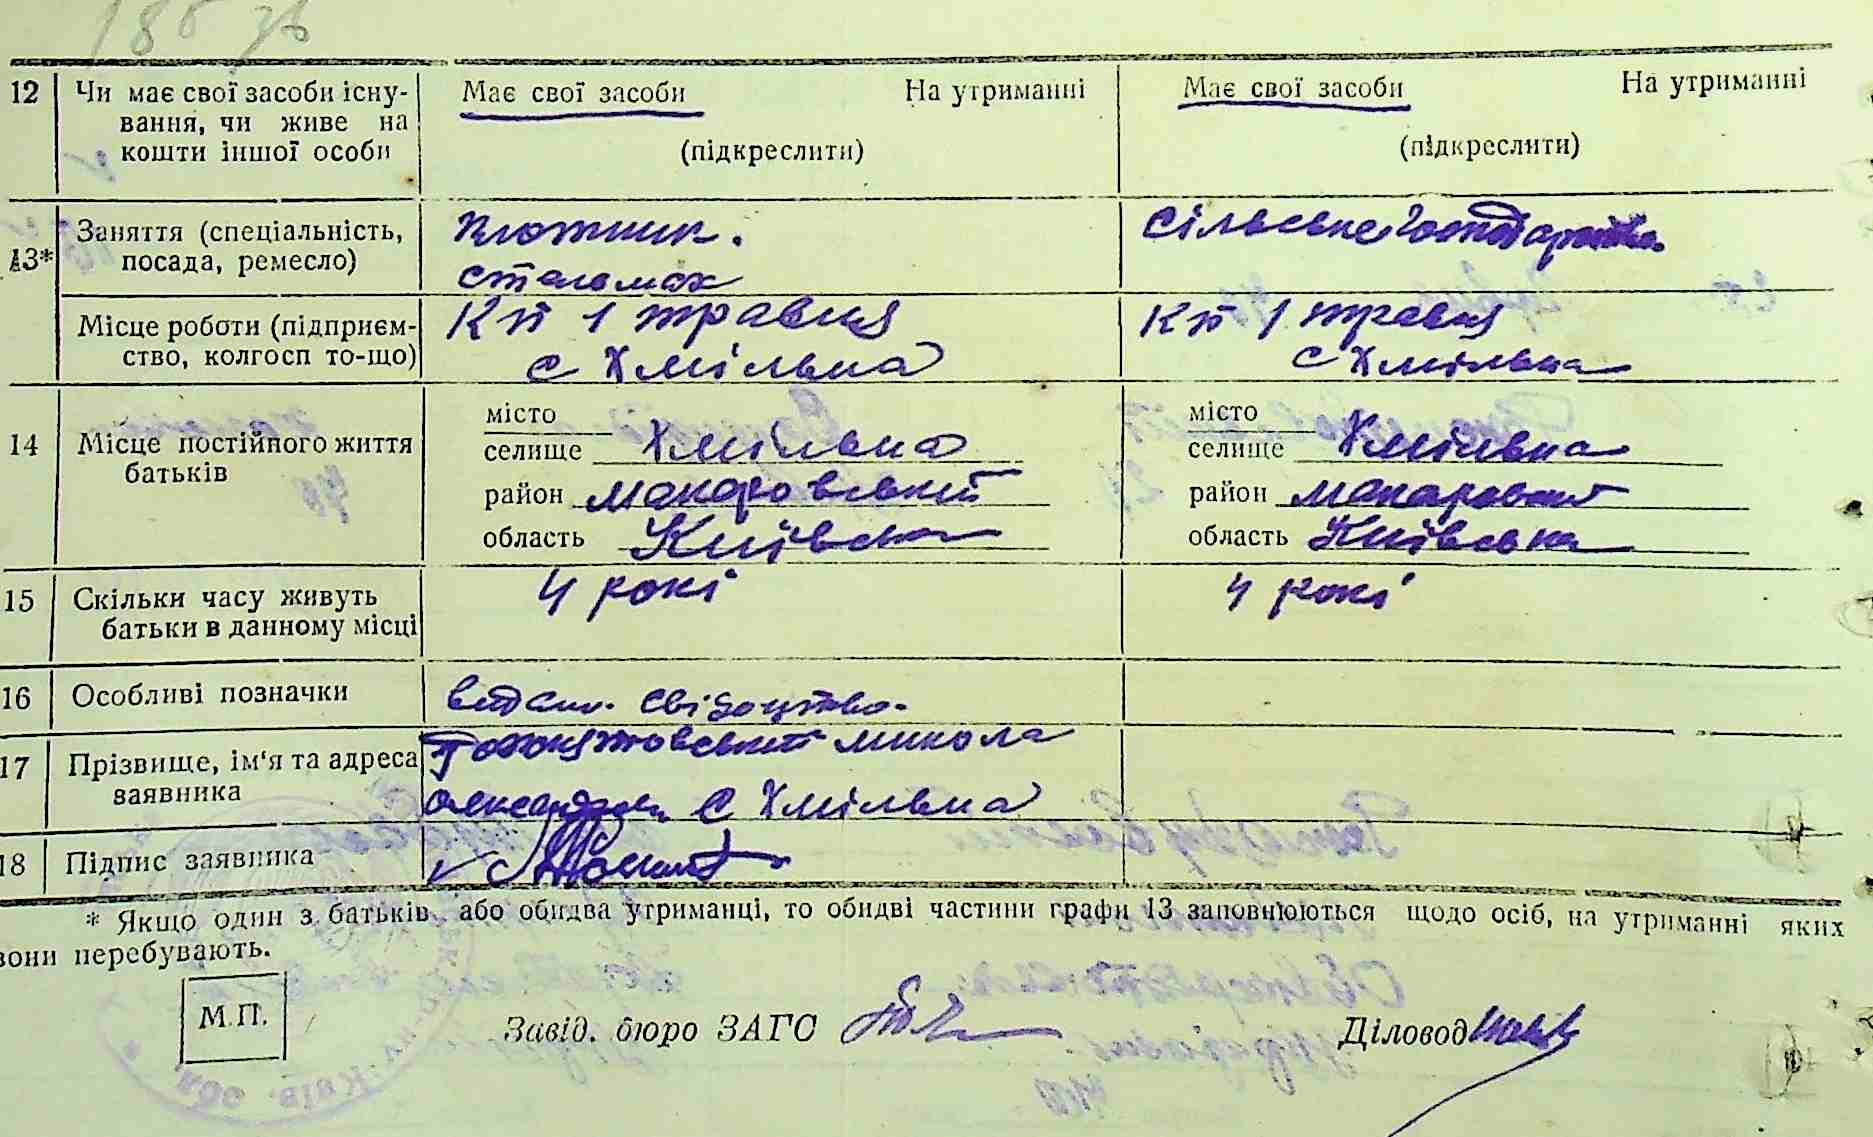 186 зв
12 Чи має свої засоби існу- Має свої засоби На утриманні Має свої засоби На утриманні
вання, чи живе на
кошти іншої особи (підкреслити) (підкреслити)
13* Заняття (спеціальність, плотник. Сільське господарство
посада, ремесло) стельмах
Місце роботи (підприєм- Кп 1 травня Кп 1 травня
ство, колгосп то-що) с Хмільна с Хмільна
14 Місце постійного життя місто місто
батьків селище Хмільна селище Хмільна
район Макаровський район Макаровский
область Київська область Київська
15 Скільки часу живуть 4 рокі 4 рокі
батьки в данному місці
16 Особливі позначки видано свідоцтво.
17 Прізвище, ім'я та адреса Микола
заявника Олександров. с Хмільна
18 Підпис заявника
* Якщо один з батьків або обидва утриманці, то обидві частини графи 13 заповнюються щодо осіб, на утриманні яких
вони перебувають.
М.П. Завід. бюро ЗАГС Діловод